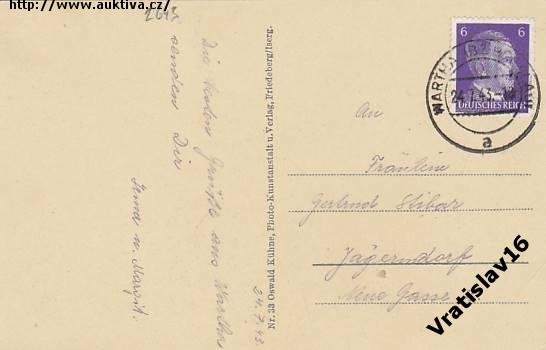 http://www.auktiva.cz/
2643
Die besten Grüße aus Wartha
senden Dir
Irma u. Margit.
24.7.43.
Nr. 33 Oswald Kühne, Photo-Kunstanstalt u. Verlag, Friedeberg/Iserg.
6 6
DEUTSCHES REICH
WARTHA
24.7.43.
a
An
Fräulein
Gertrud Stibar
Jägerndorf
Neue Gasse
Vratislav16